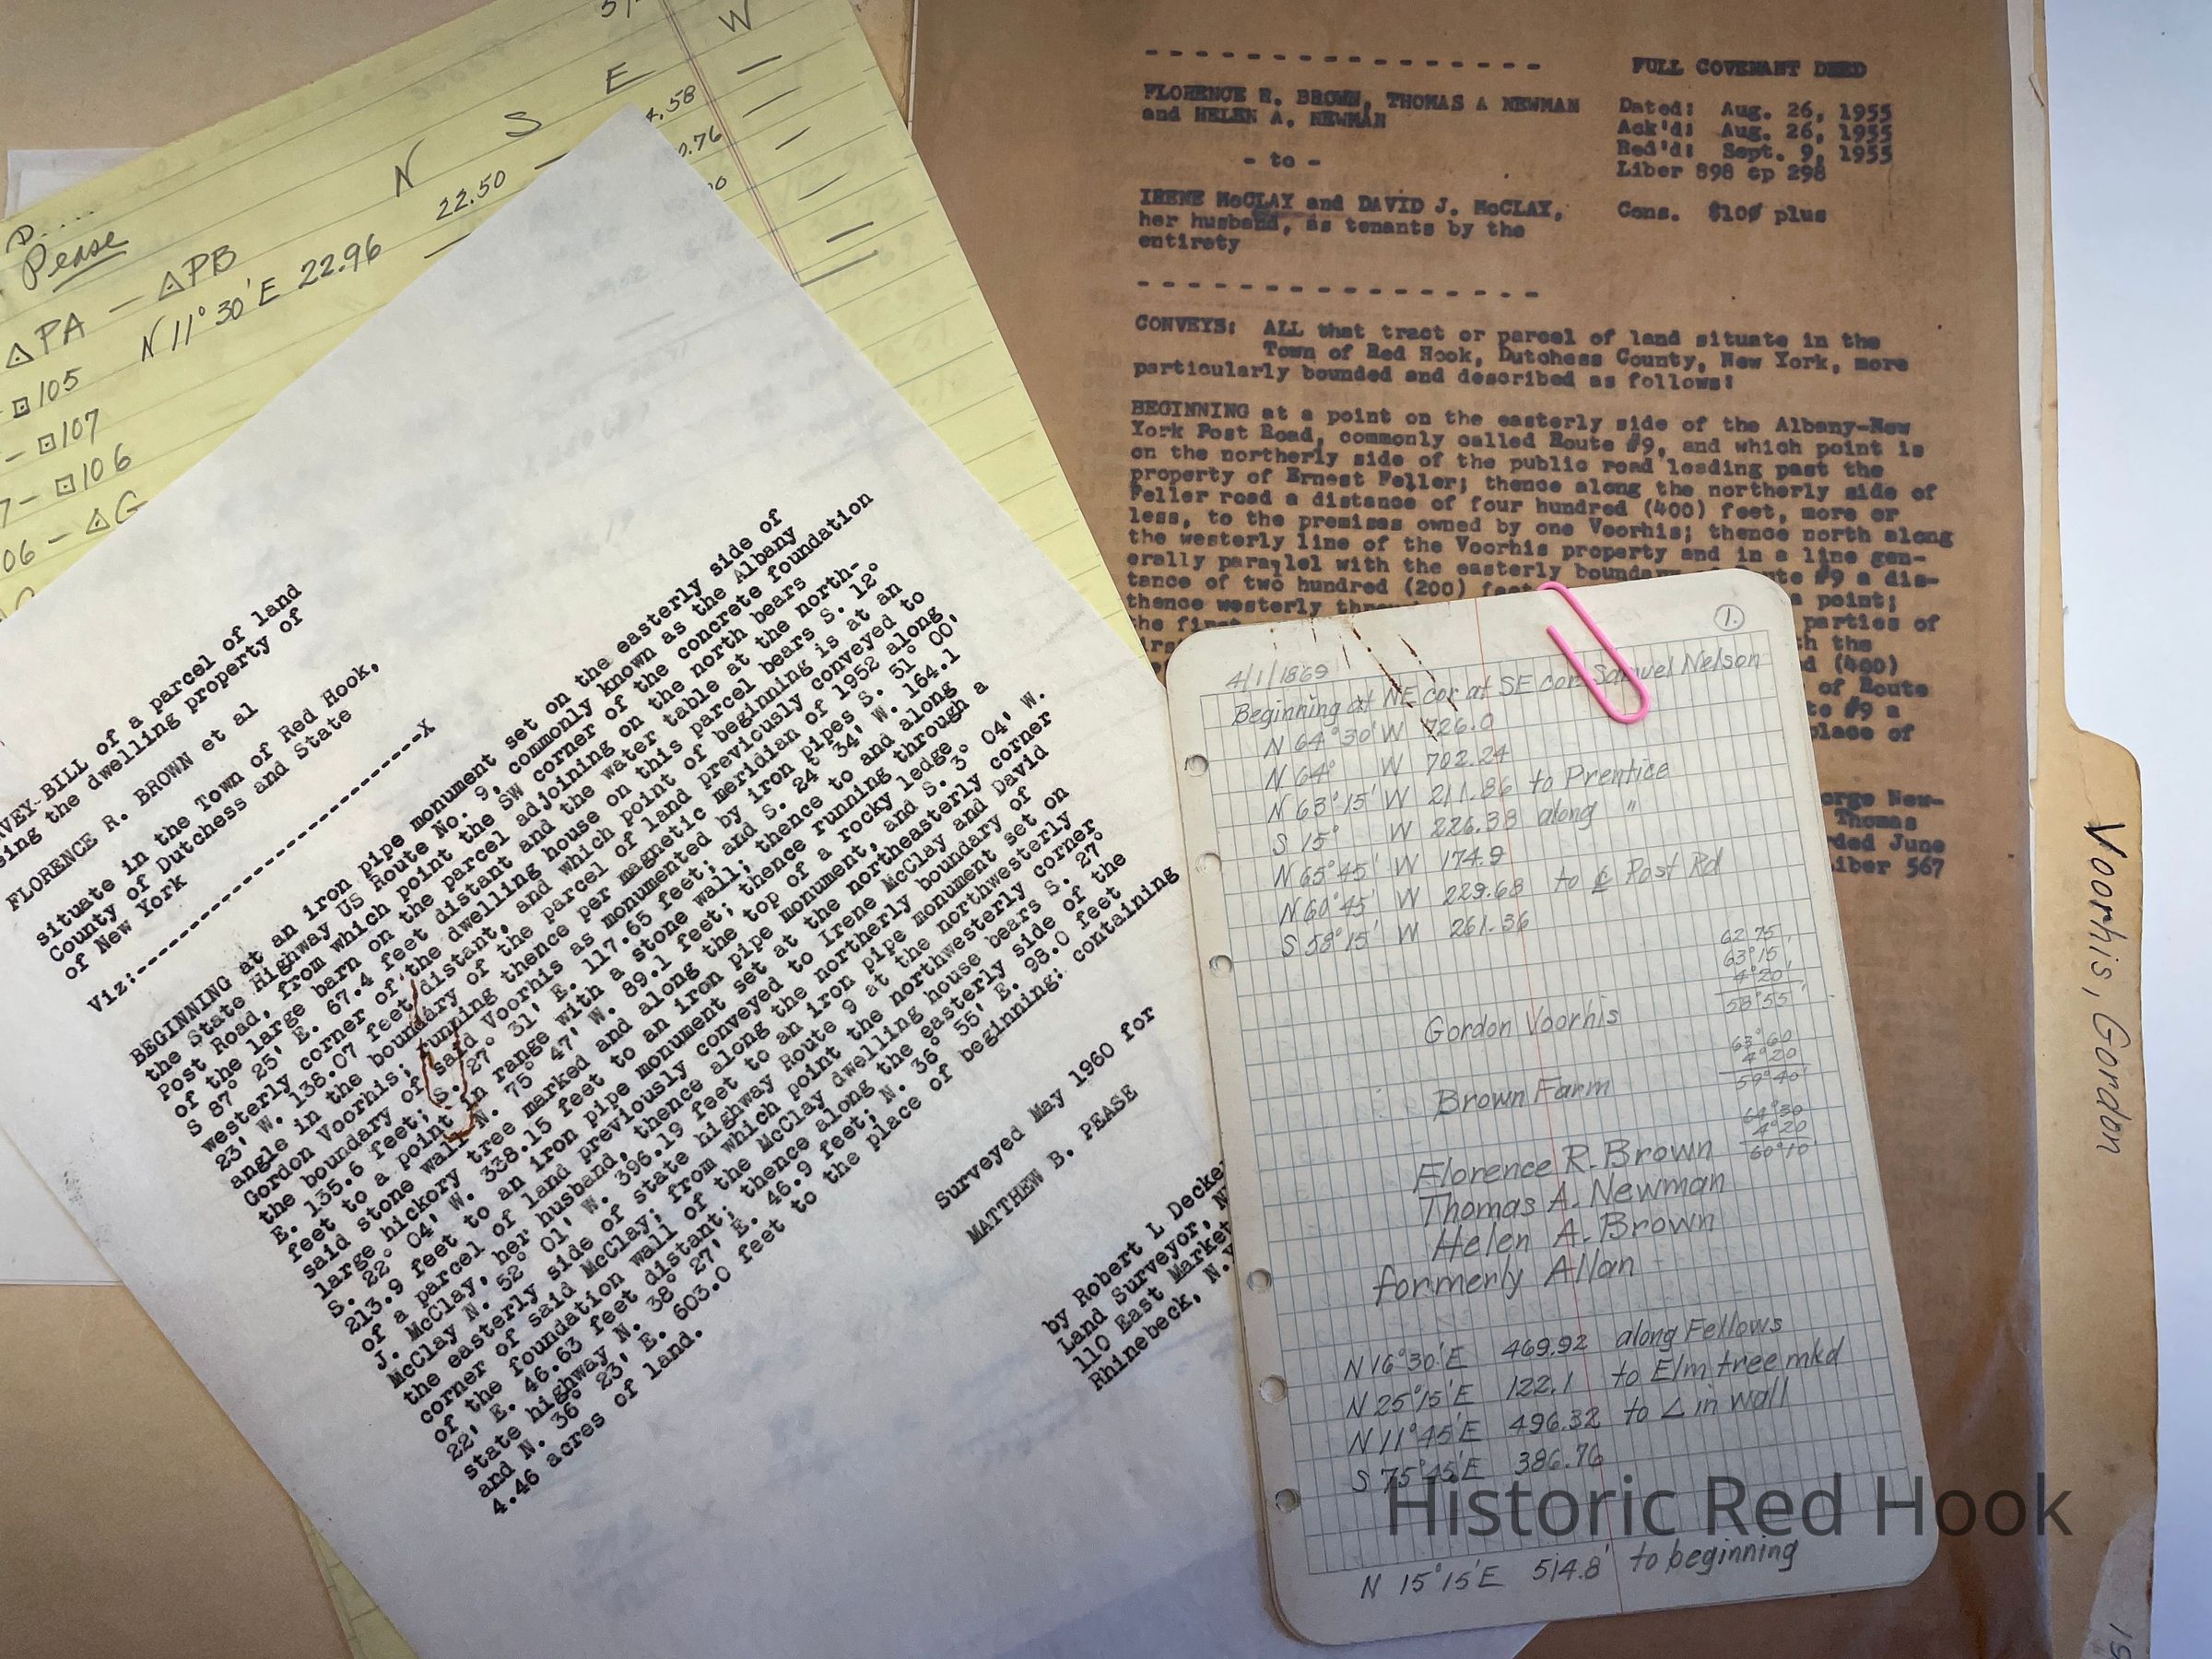 W
E
S
N
4.58
0.76
22.50
Pease
△PA — △PB
N 11° 30' E 22.96
105
107
106
06 - △G
VEY-BILL of a parcel of land
ing the dwelling property of
FLORENCE R. BROWN et al
situate in the Town of Red Hook,
County of Dutchess and State
of New York
Viz:------------------------------x
BEGINNING at an iron pipe monument set on the easterly side of
the State Highway US Route No. 9, commonly known as the Albany
Post Road, from which point the SW corner of the concrete foundation
of the large barn on the parcel adjoining on the north bears
S 87° 25' E. 67.4 feet distant and the water table at the north-
westerly corner of the dwelling house on this parcel bears S. 12°
23' W. 138.07 feet distant, and which point of beginning is at an
angle in the boundary of the parcel of land previously conveyed to
Gordon Voorhis; running thence per magnetic meridian of 1952 along
the boundary of said Voorhis as monumented by iron pipes S. 51° 00'
E. 135.6 feet; S. 27° 31' E. 117.65 feet; and S. 24° 34' W. 164.1
feet to a point in range with a stone wall; thence to and along
said stone wall N. 75° 47' W. 89.1 feet; thence running through a
large hickory tree marked and along the top of a rocky ledge
S. 22° 04' W. 338.15 feet to an iron pipe monument, and S. 3° 04' W.
213.9 feet to an iron pipe monument set at the northeasterly corner
of a parcel of land previously conveyed to Irene McClay and David
J. McClay, her husband, thence along the northerly boundary of
McClay N. 52° 01' W. 396.19 feet to an iron pipe monument set on
the easterly side of state highway Route 9 at the northwesterly
corner of said McClay; from which point the northwesterly corner
of the foundation wall of the McClay dwelling house bears S. 27°
22' E. 46.63 feet distant; thence along the easterly side of the
state highway N. 38° 27' E. 46.9 feet; N. 36° 55' E. 98.0 feet
and N. 36° 23' E. 603.0 feet to the place of beginning: containing
4.46 acres of land.
Surveyed May 1960 for
MATTHEW B. PEASE
by Robert L Decke
Land Surveyor, N
110 East Market
Rhinebeck, N.Y
FULL COVENANT DEED
FLORENCE R. BROWN, THOMAS A NEWMAN
and HELEN A. NEWMAN
- to -
IRENE McCLAY and DAVID J. McCLAY,
her husband, as tenants by the
entirety
Dated: Aug. 26, 1955
Ack'd: Aug. 26, 1955
Rec'd: Sept. 9, 1955
Liber 898 cp 298
Cons. $100 plus
CONVEYS: ALL that tract or parcel of land situate in the
Town of Red Hook, Dutchess County, New York, more
particularly bounded and described as follows:
BEGINNING at a point on the easterly side of the Albany-New
York Post Road, commonly called Route #9, and which point is
on the northerly side of the public road leading past the
property of Ernest Feller; thence along the northerly side of
Feller road a distance of four hundred (400) feet, more or
less, to the premises owned by one Voorhis; thence north along
the westerly line of the Voorhis property and in a line gen-
erally parallel with the easterly boundary Route #9 a dis-
tance of two hundred (200) feet a point;
thence westerly parties of
the first th the
d (400)
of Route
te #9 a
place of
orge New-
Thomas
ded June
iber 567
1.
4/1/1869
Beginning at NE cor at SE cor. Samuel Nelson
N 64° 30' W 726.0
N 64° W 702.24
N 63° 15' W 211.86 to Prentice
S 15° W 226.38 along "
N 65° 45' W 174.9
N 60° 45' W 229.68 to ℄ Post Rd
S 58° 15' W 261.36
62 75
63° 15'
4° 20'
58° 55'
Gordon Voorhis
63° 60
4° 20
59° 40'
Brown Farm
64° 30
4° 20
60° 10
Florence R. Brown
Thomas A. Newman
Helen A. Brown
formerly Allan
N 16° 30' E 469.92 along Fellows
N 25° 15' E 122.1 to Elm tree mkd
N 11° 45' E 496.32 to ∠ in wall
S 75° 45' E 386.76
N 15° 15' E 514.8' to beginning
Voorhis, Gordon
Historic Red Hook